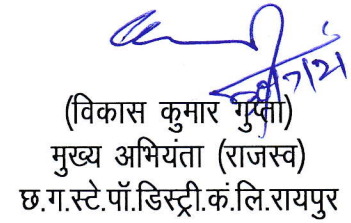 (विकास कुमार गुप्ता)
मुख्य अभियंता (राजस्व)
छ.ग.स्टे.पॉ.डिस्ट्री.कं.लि.रायपुर